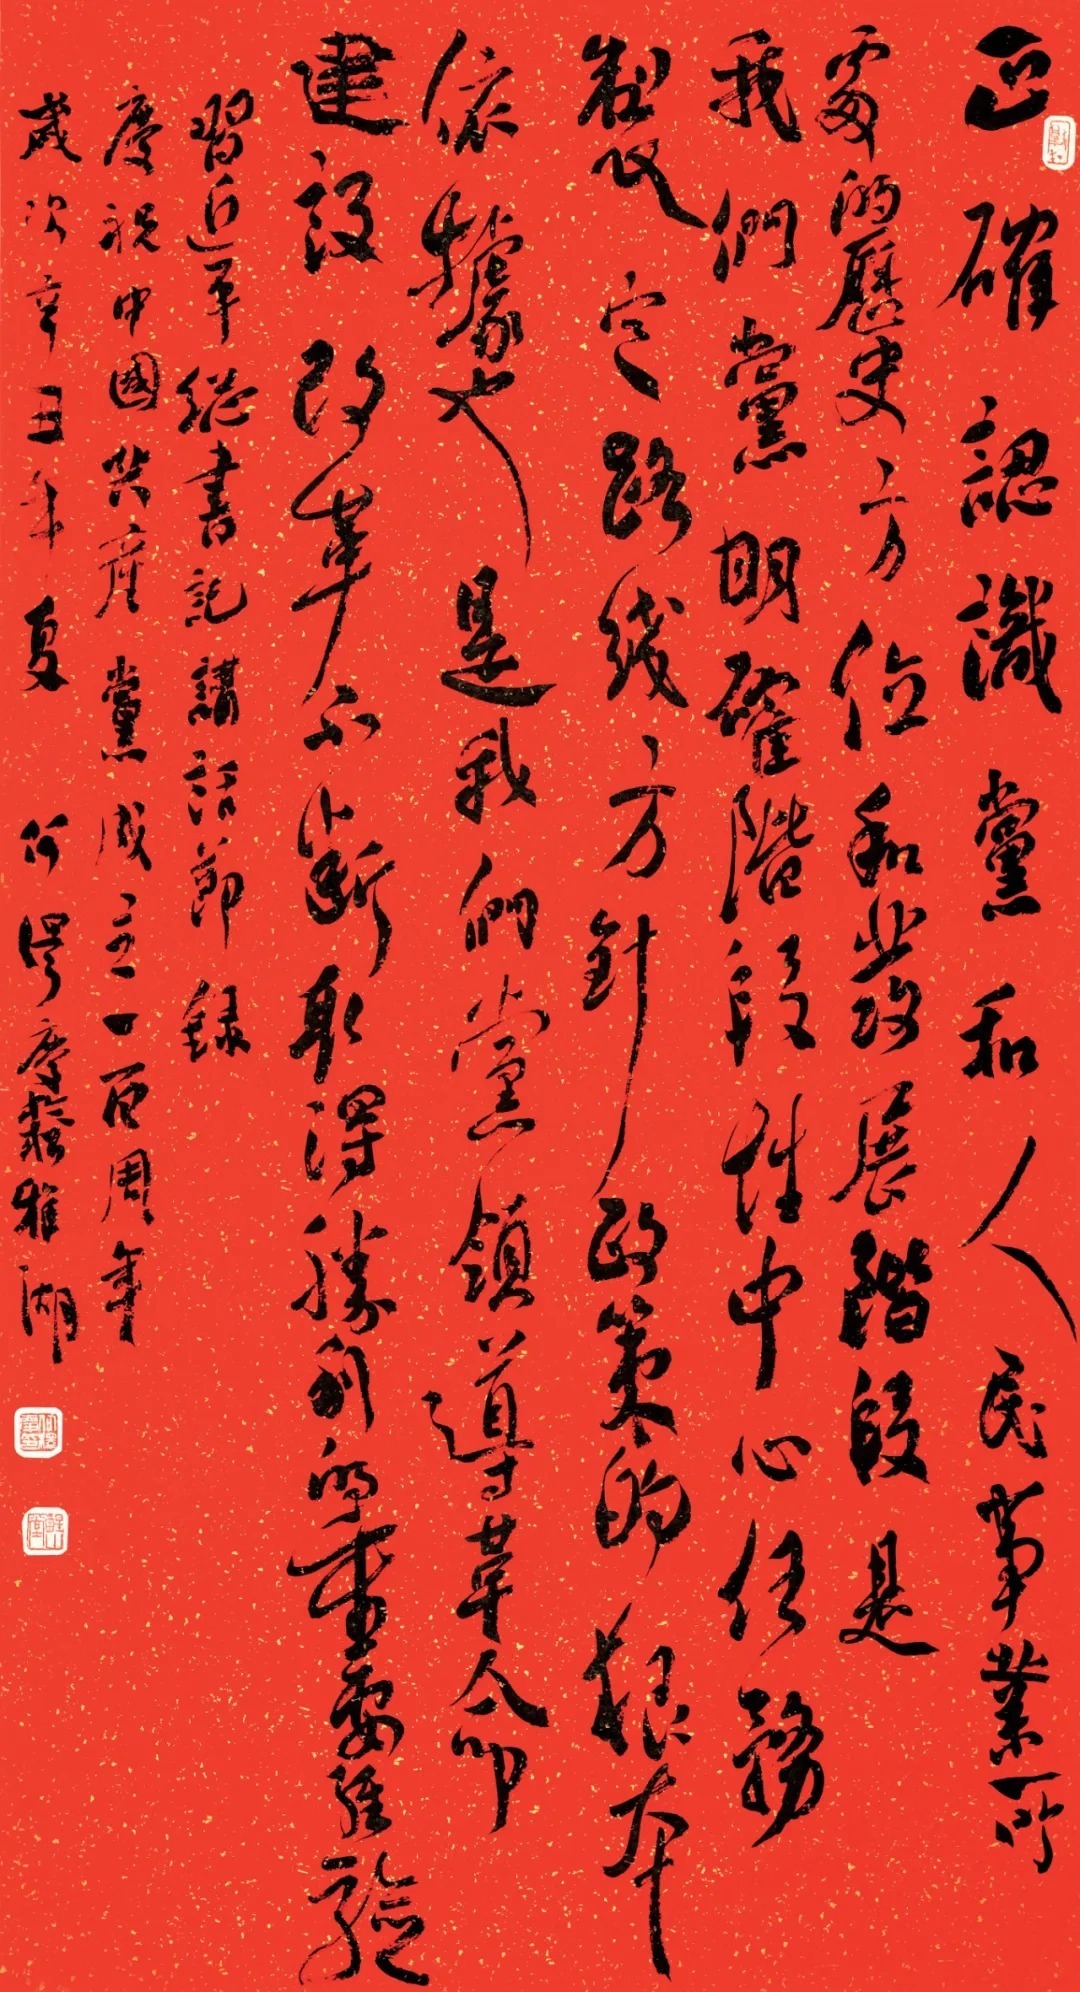 正確認識黨和人民事業所
處的歷史方位和發展階段是
我們黨明確階段性中心任務
製定路线方針政策的根本
依據也是我們黨領導革命
建設改革不斷取得勝利的重要經驗
習近平總書記講話節録
慶祝中國共產黨成立一百周年
歲次辛丑年夏 何 雅湖